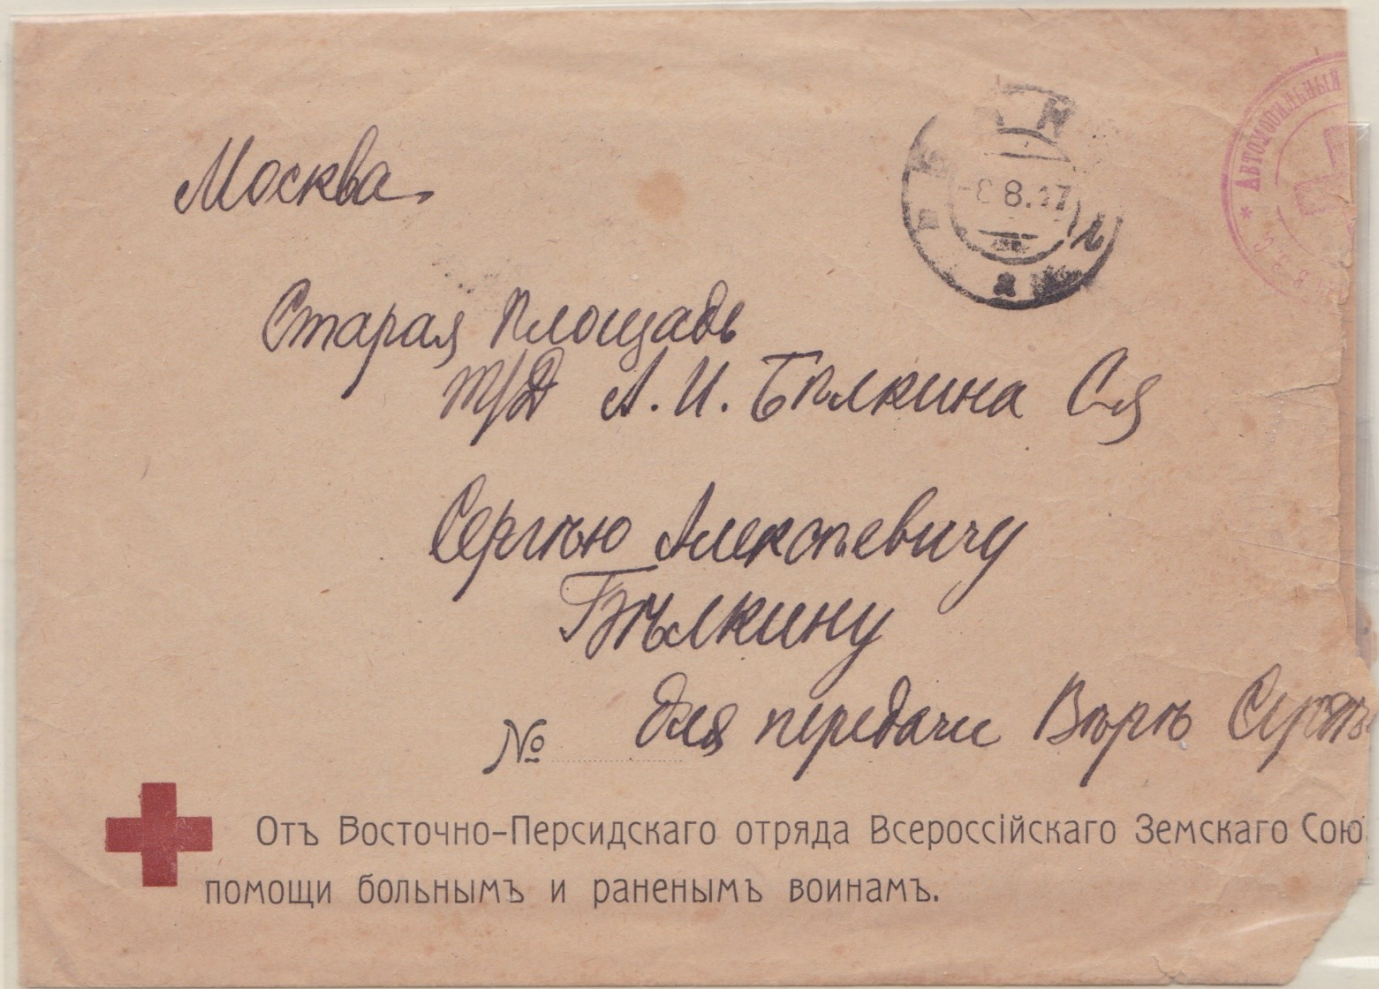 Москва.
-8.8.17
* Автомобильный
В.З.С.
Старая Площадь
Т/Д А. И. Бѣлкина С-я
Сергѣю Алексѣевичу
Бѣлкину
для передачи Вѣрѣ
№
Отъ Восточно-Персидскаго отряда Всероссійскаго Земскаго Сою
помощи больнымъ и раненымъ воинамъ.